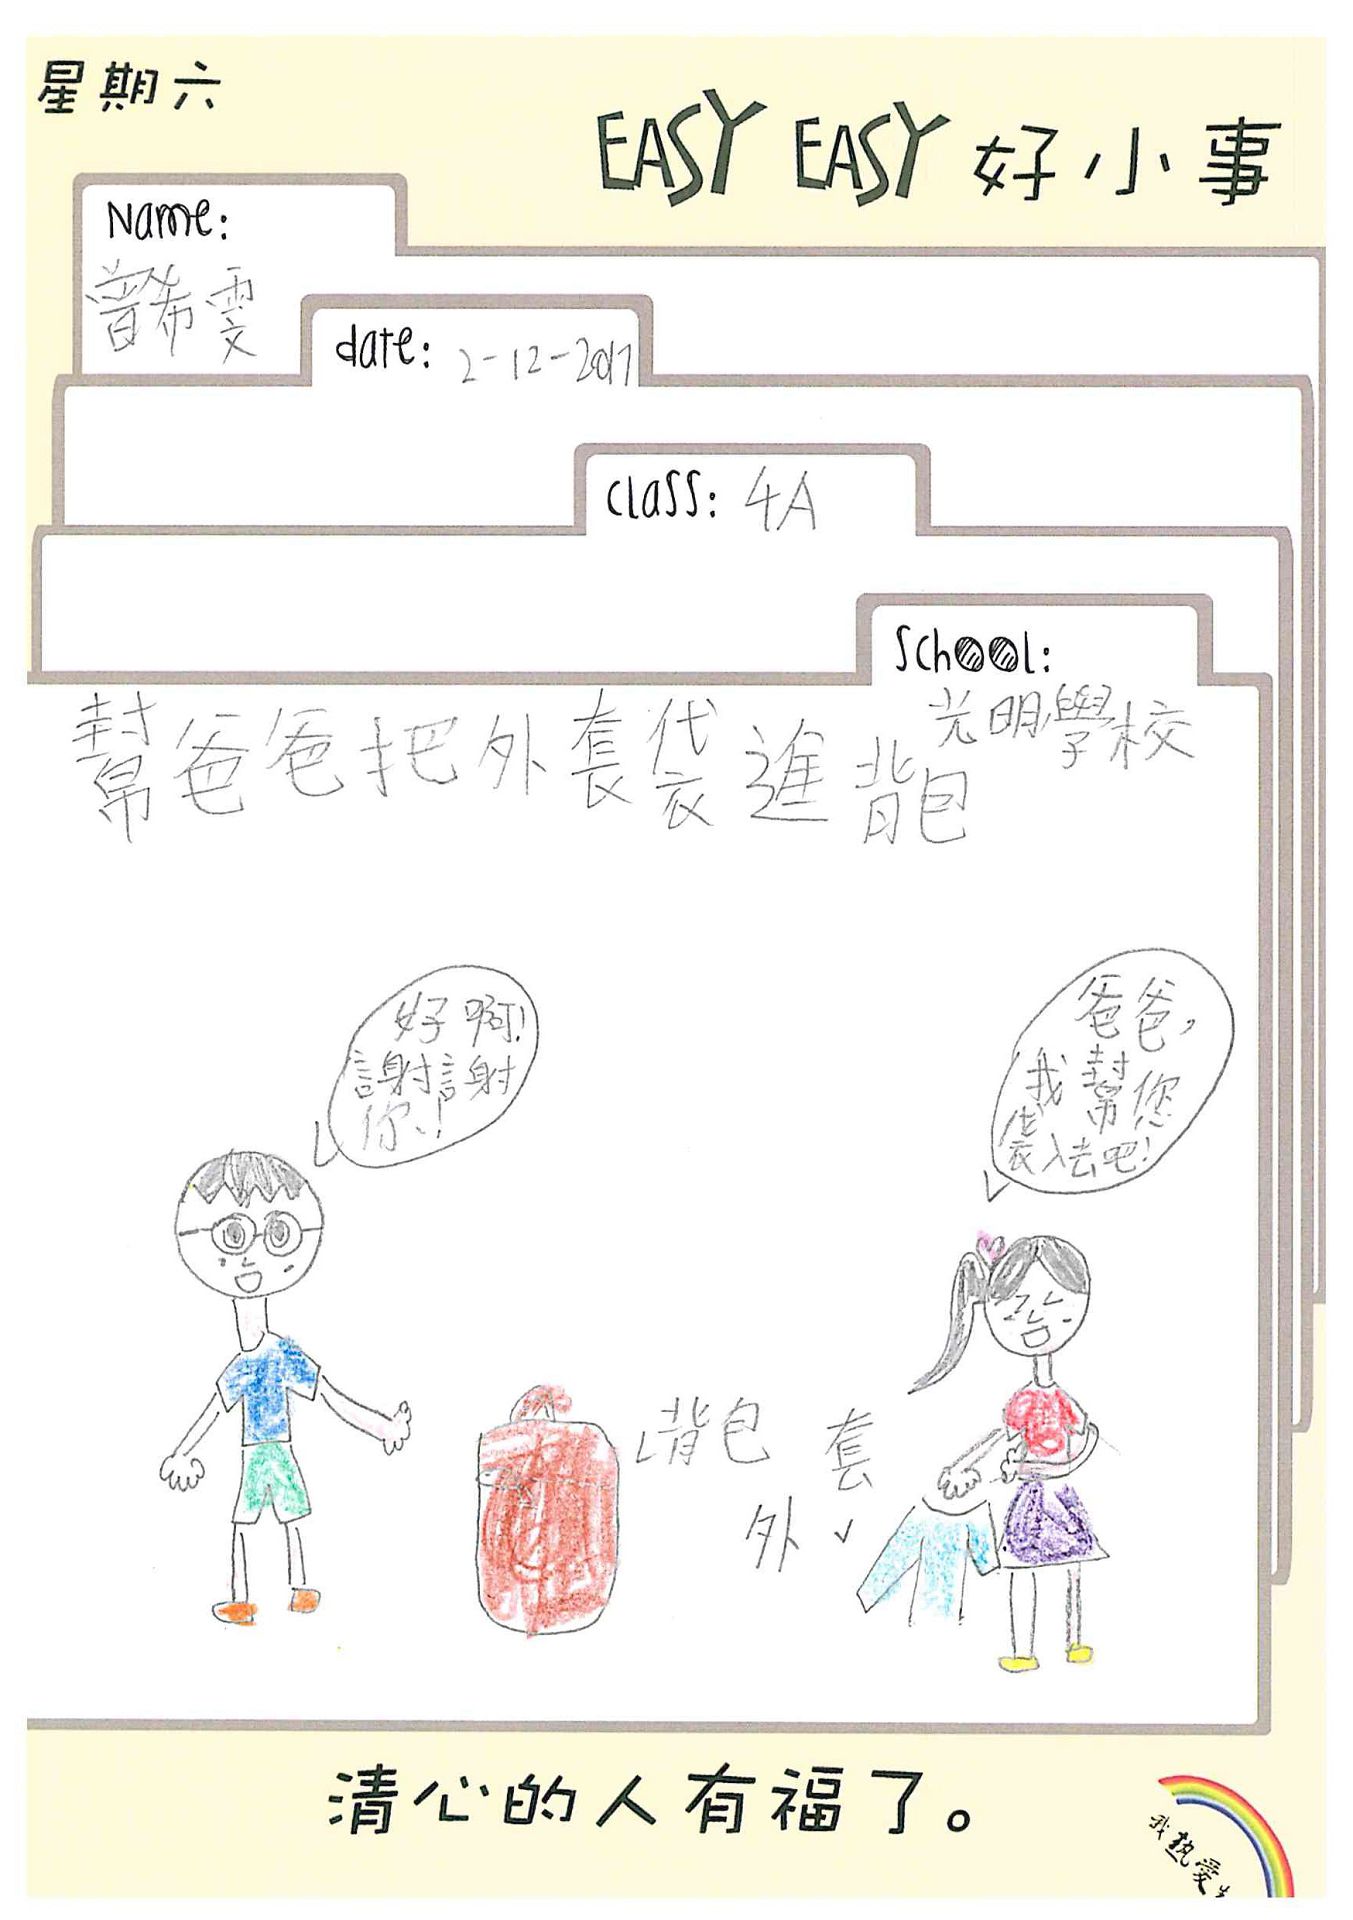 星期六
EASY EASY 好小事
Name:
曾希雯
date: 2-12-2017
class: 4A
School:
光明學校
幫爸爸把外套袋進背包
好啊!
謝謝
你!
爸爸,
我幫您
袋入去吧!
背包
外套
清心的人有福了。
我热爱